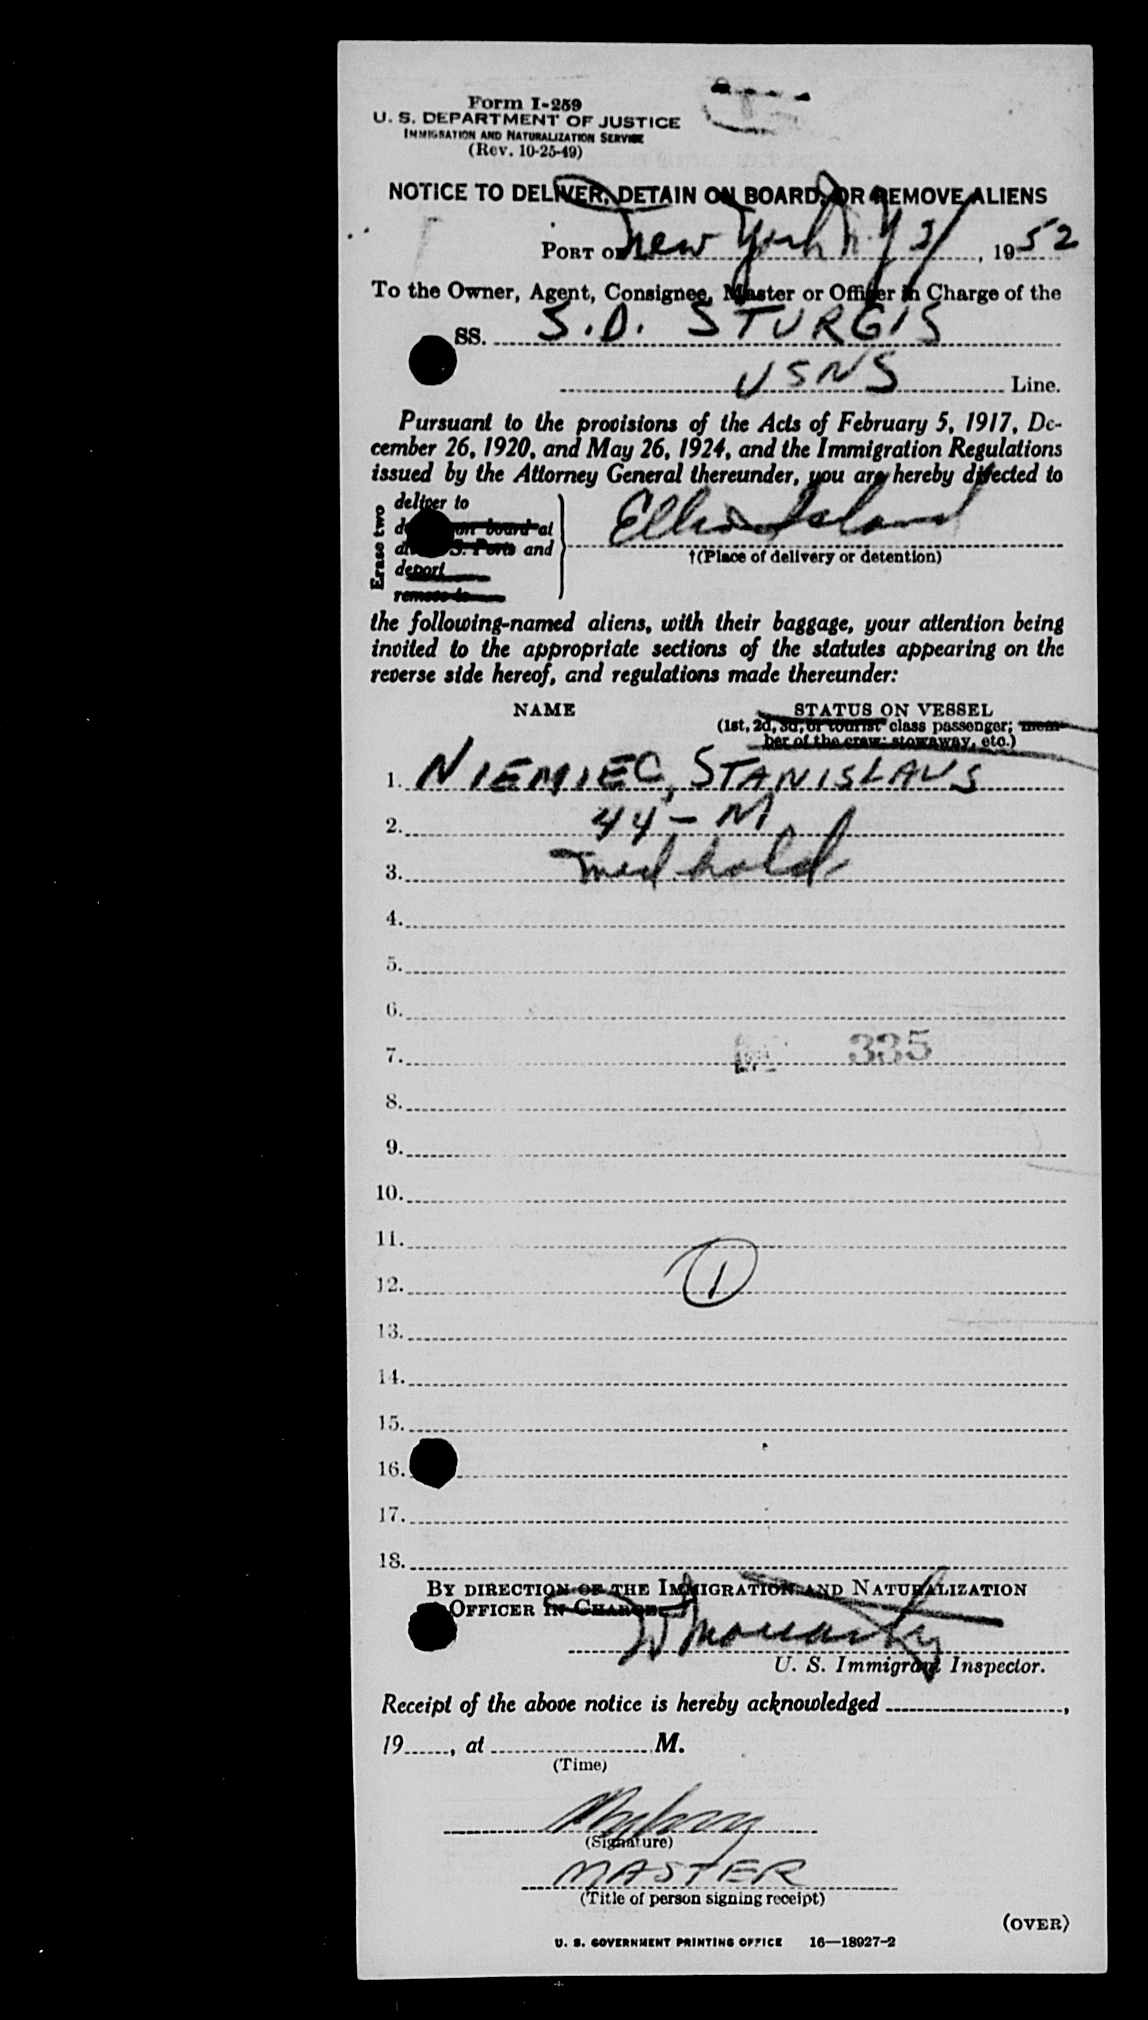 Form I-259
U. S. DEPARTMENT OF JUSTICE
IMMIGRATION AND NATURALIZATION SERVICE
(Rev. 10-25-49)
NOTICE TO DELIVER, DETAIN ON BOARD, OR REMOVE ALIENS
PORT OF New York N.Y. , 1952
To the Owner, Agent, Consignee, Master or Officer in Charge of the
SS. S.D. STURGIS
USNS Line.
Pursuant to the provisions of the Acts of February 5, 1917, De-
cember 26, 1920, and May 26, 1924, and the Immigration Regulations
issued by the Attorney General thereunder, you are hereby directed to
Erase two
deliver to
on board at
U.S. Ports and
deport
remove to
Ellis Island
†(Place of delivery or detention)
the following-named aliens, with their baggage, your attention being
invited to the appropriate sections of the statutes appearing on the
reverse side hereof, and regulations made thereunder:
NAME STATUS ON VESSEL
(1st, 2d, 3d, or tourist class passenger; mem-
ber of the crew; stowaway, etc.)
1. NIEMIEC, STANISLAUS
2. 44-M
3. med hold
4.
5.
6.
7. 335
8.
9.
10.
11.
12. 1
13.
14.
15.
16.
17.
18.
BY DIRECTION OF THE IMMIGRATION AND NATURALIZATION
OFFICER IN CHARGE
U. S. Immigrant Inspector.
Receipt of the above notice is hereby acknowledged ,
19 , at M.
(Time)
(Signature)
MASTER
(Title of person signing receipt)
(OVER)
U. S. GOVERNMENT PRINTING OFFICE 16—18927-2